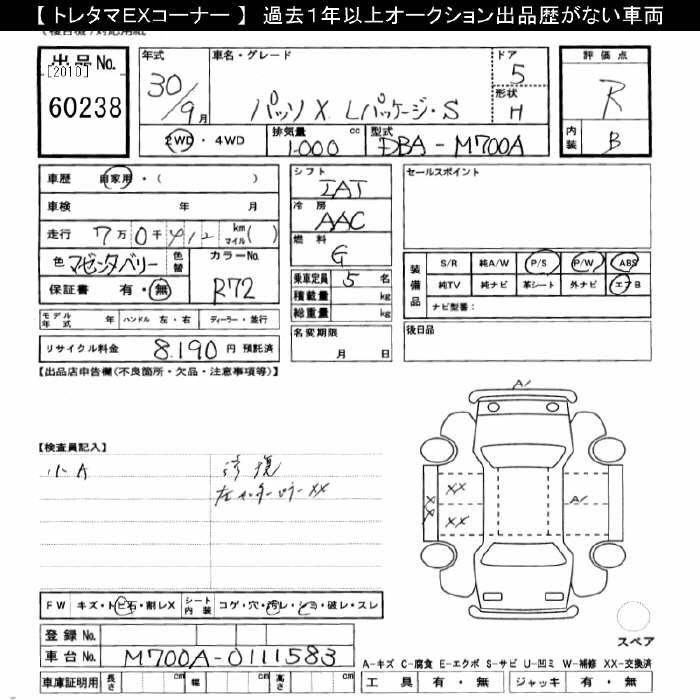 【トレタマEXコーナー】 過去1年以上オークション出品歴がない車両
出品No.
[2010]
60238
年式
30/9月
車名・グレード
パッソ X Lパッケージ・S
ドア
5
形状
H
評価点
R
内装
B
2WD・4WD
排気量 1000 cc
型式 DBA-M700A
車歴 自家用・( )
車検 年 月
走行 7万0千412 km マイル( )
色 マゼンタベリー
色替
カラーNo.
R72
保証書 有・無
シフト
IAT
冷房
AAC
燃料
G
乗車定員 5 名
積載量 kg
総重量 kg
セールスポイント
装備品
S/R 純A/W P/S P/W ABS
純TV 純ナビ 革シート 外ナビ エアB
ナビ型番:
モデル年式 年 ハンドル 左・右 ディーラー・並行
名変期限
月 日
後日品
リサイクル料金 8,190 円 預託済
【出品店申告欄(不良箇所・欠品・注意事項等)】
A1
【検査員記入】
小A
修復
左センターピラーXX
XX
XX
XX
A1
FW キズ・トビ石・割レX
シート内装 コゲ・穴・汚レ・シミ・破レ・スレ
スペア
登録No.
車台No. M700A-0111583
A-キズ C-腐食 E-エクボ S-サビ U-凹ミ W-補修 XX-交換済
車庫証明用 長さ cm 幅 cm 高さ cm
工具 有・無 ジャッキ 有・無